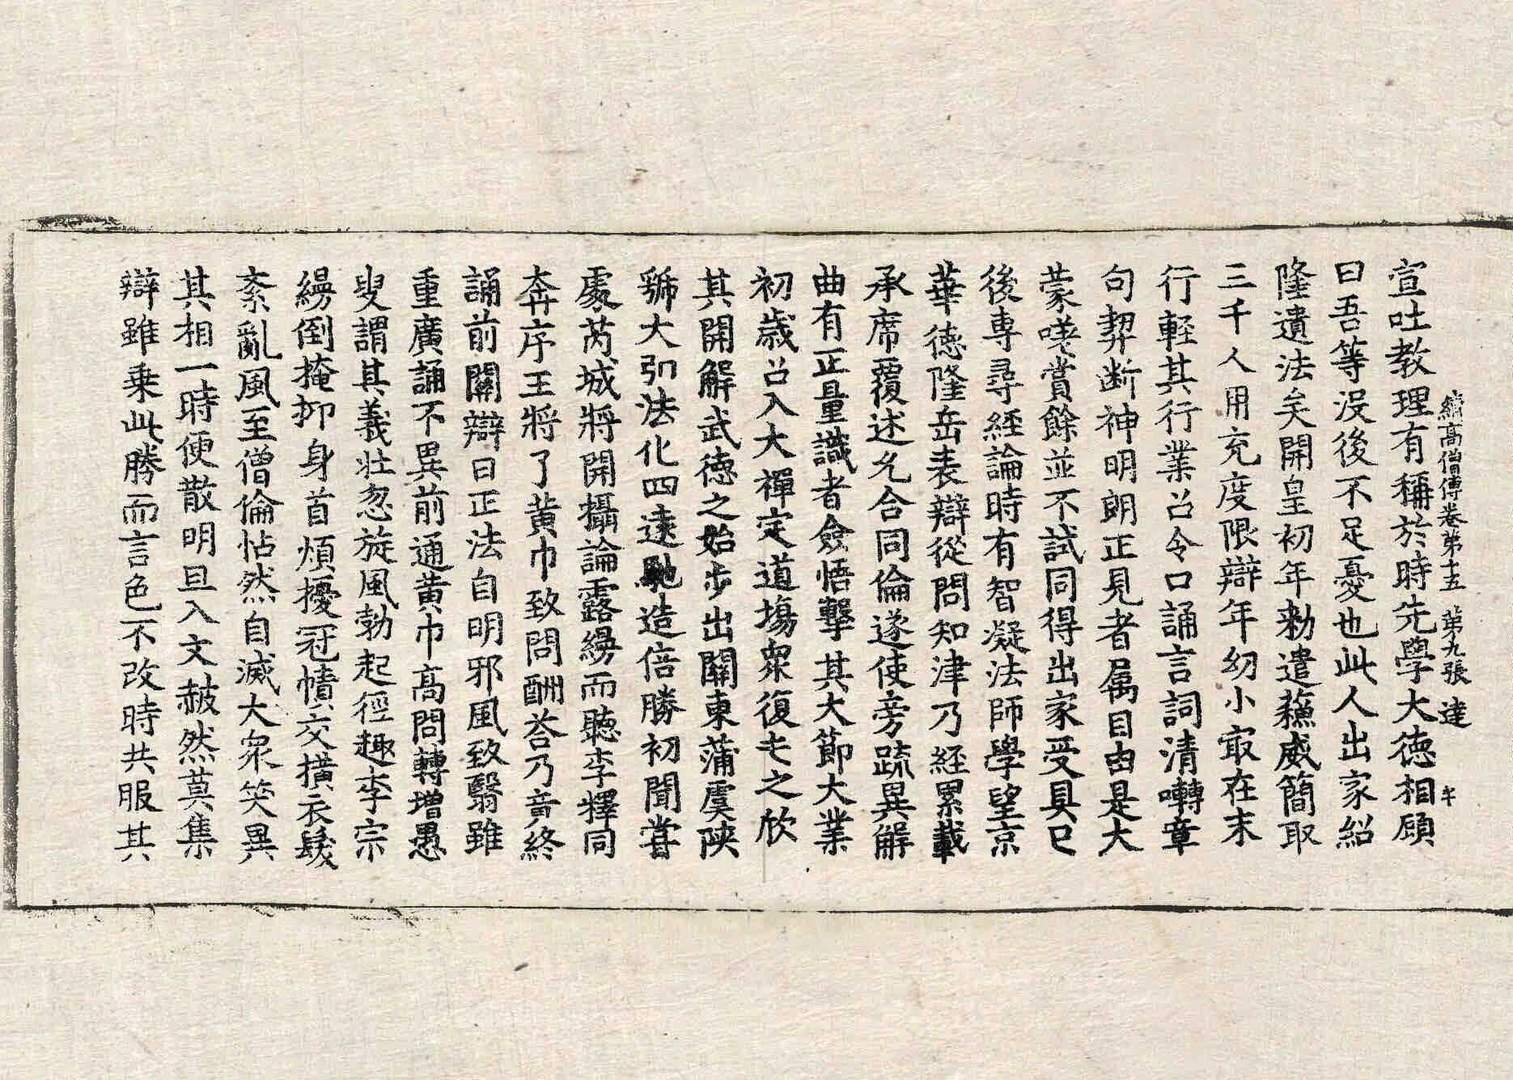 續高僧傳卷第十五 第九張 達
宣吐教理有稱於時先學大德相顧
曰吾等沒後不足憂也此人出家紹
隆遺法矣開皇初年勑遣蘓威簡取
三千人用充度限辯年幼小㝡在末
行輕其行業召令口誦言詞清囀章
句契断神明朗正見者属目由是大
蒙嗟賞餘並不試同得出家受具已
後専尋經論時有智凝法師學望京
華德隆岳表辯從問知津乃經累載
承席覆述允合同倫遂使旁疏異解
曲有正量識者僉悟擊其大節大業
初歲召入大禪定道塲衆復屯之欣
其開解武德之始步出關東蒲虞陝
虢大引法化四遠馳造倍勝初聞甞
處芮城將開攝論露縵而聽李釋同
奔序王將了黃巾致問酬荅乃竟終
誦前關辯曰正法自明邪風致翳雖
重廣誦不異前通黄巾高問轉增愚
叟謂其義壯忽旋風勃起徑趣李宗
縵倒掩抑身首煩擾冠幘交撗衣髮
紊亂風至僧倫怗然自滅大衆笑異
其相一時便散明旦入文赧然莫集
辯雖乗此勝而言色不改時共服其